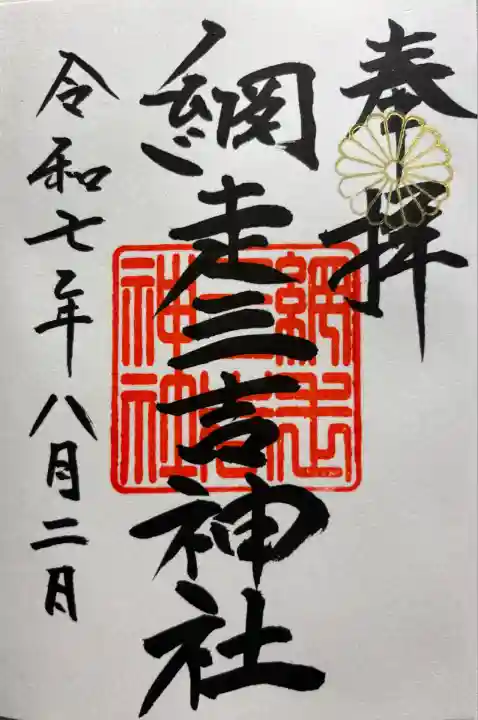 奉拝
網走三吉神社
令和七年八月二日
網走
三吉
神社